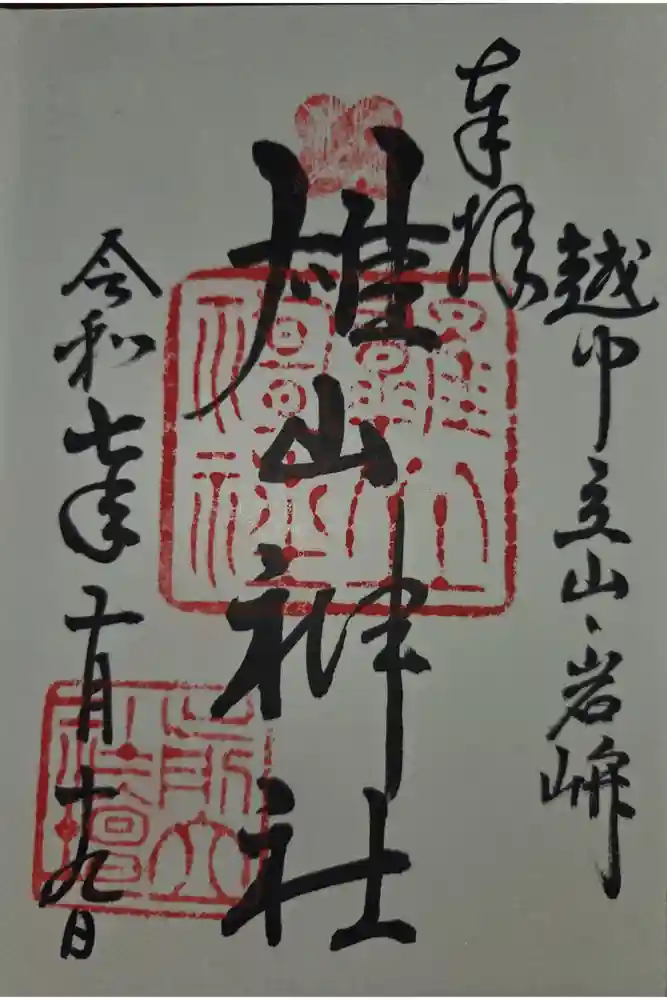 奉拝
越中立山・岩峅
雄山神社
令和七年十月十九日